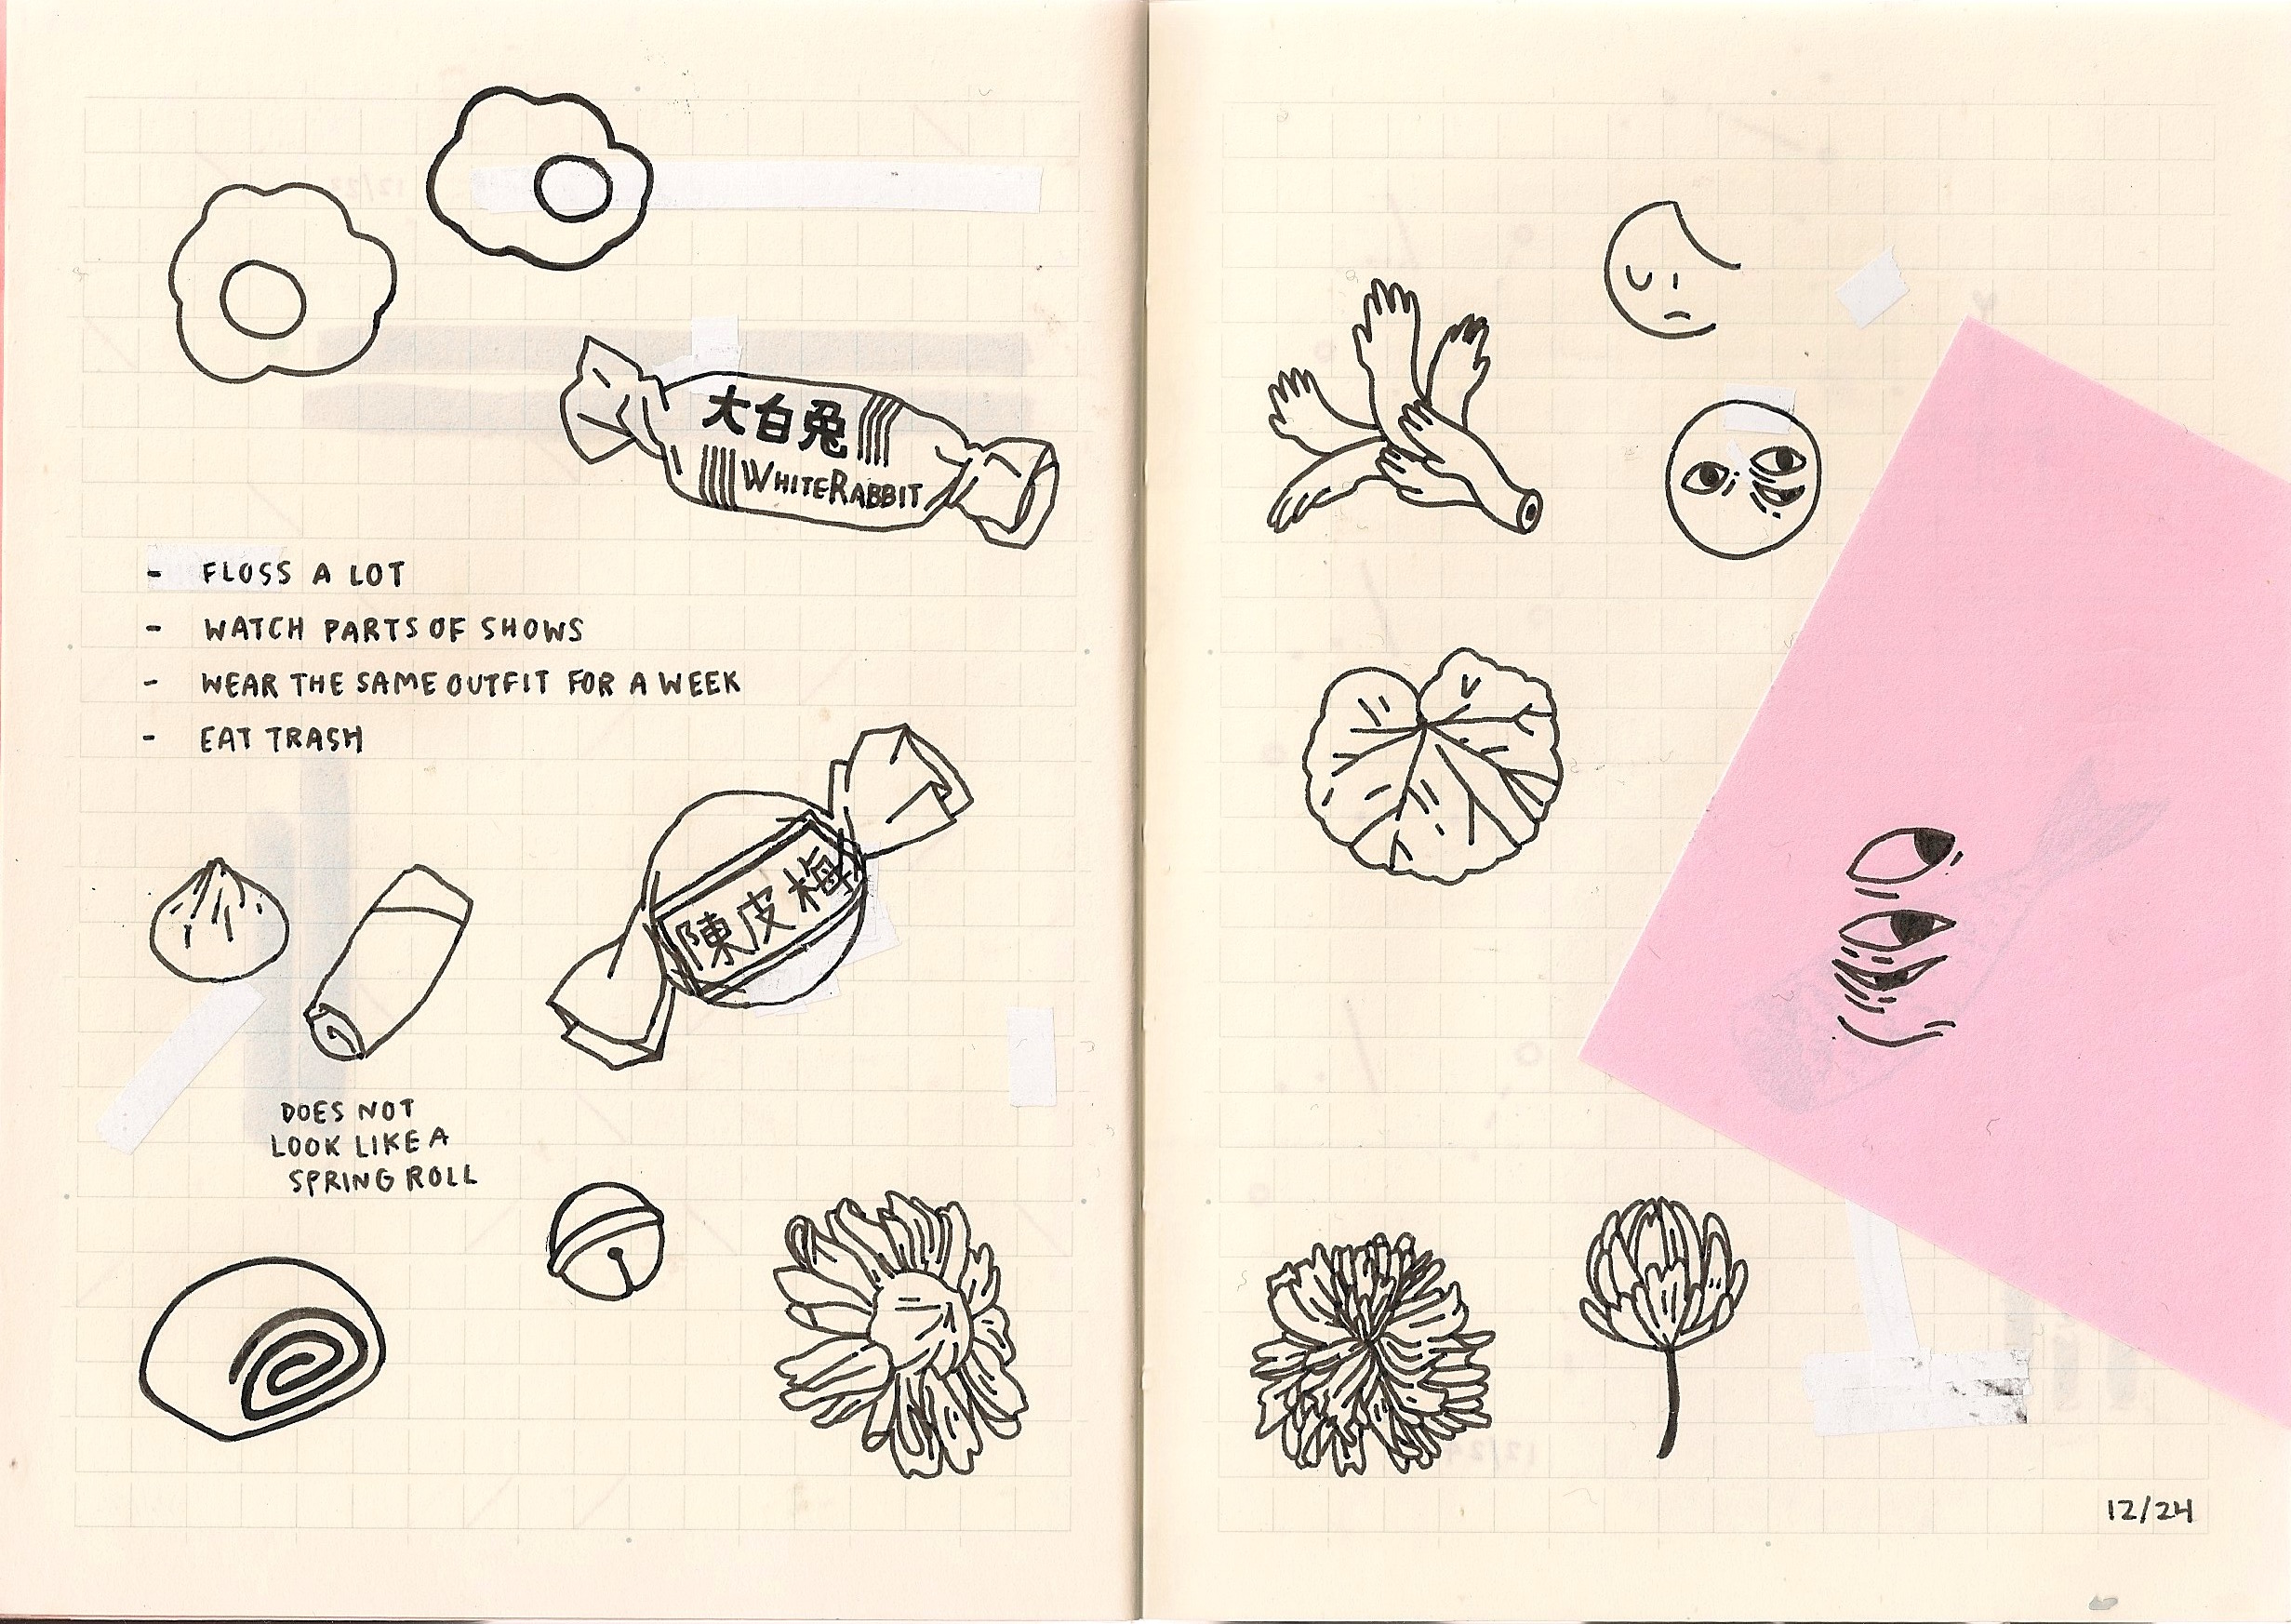 大白兔
WHITERABBIT
- FLOSS A LOT
- WATCH PARTS OF SHOWS
- WEAR THE SAME OUTFIT FOR A WEEK
- EAT TRASH
陳皮梅
DOES NOT
LOOK LIKE A
SPRING ROLL
12/24